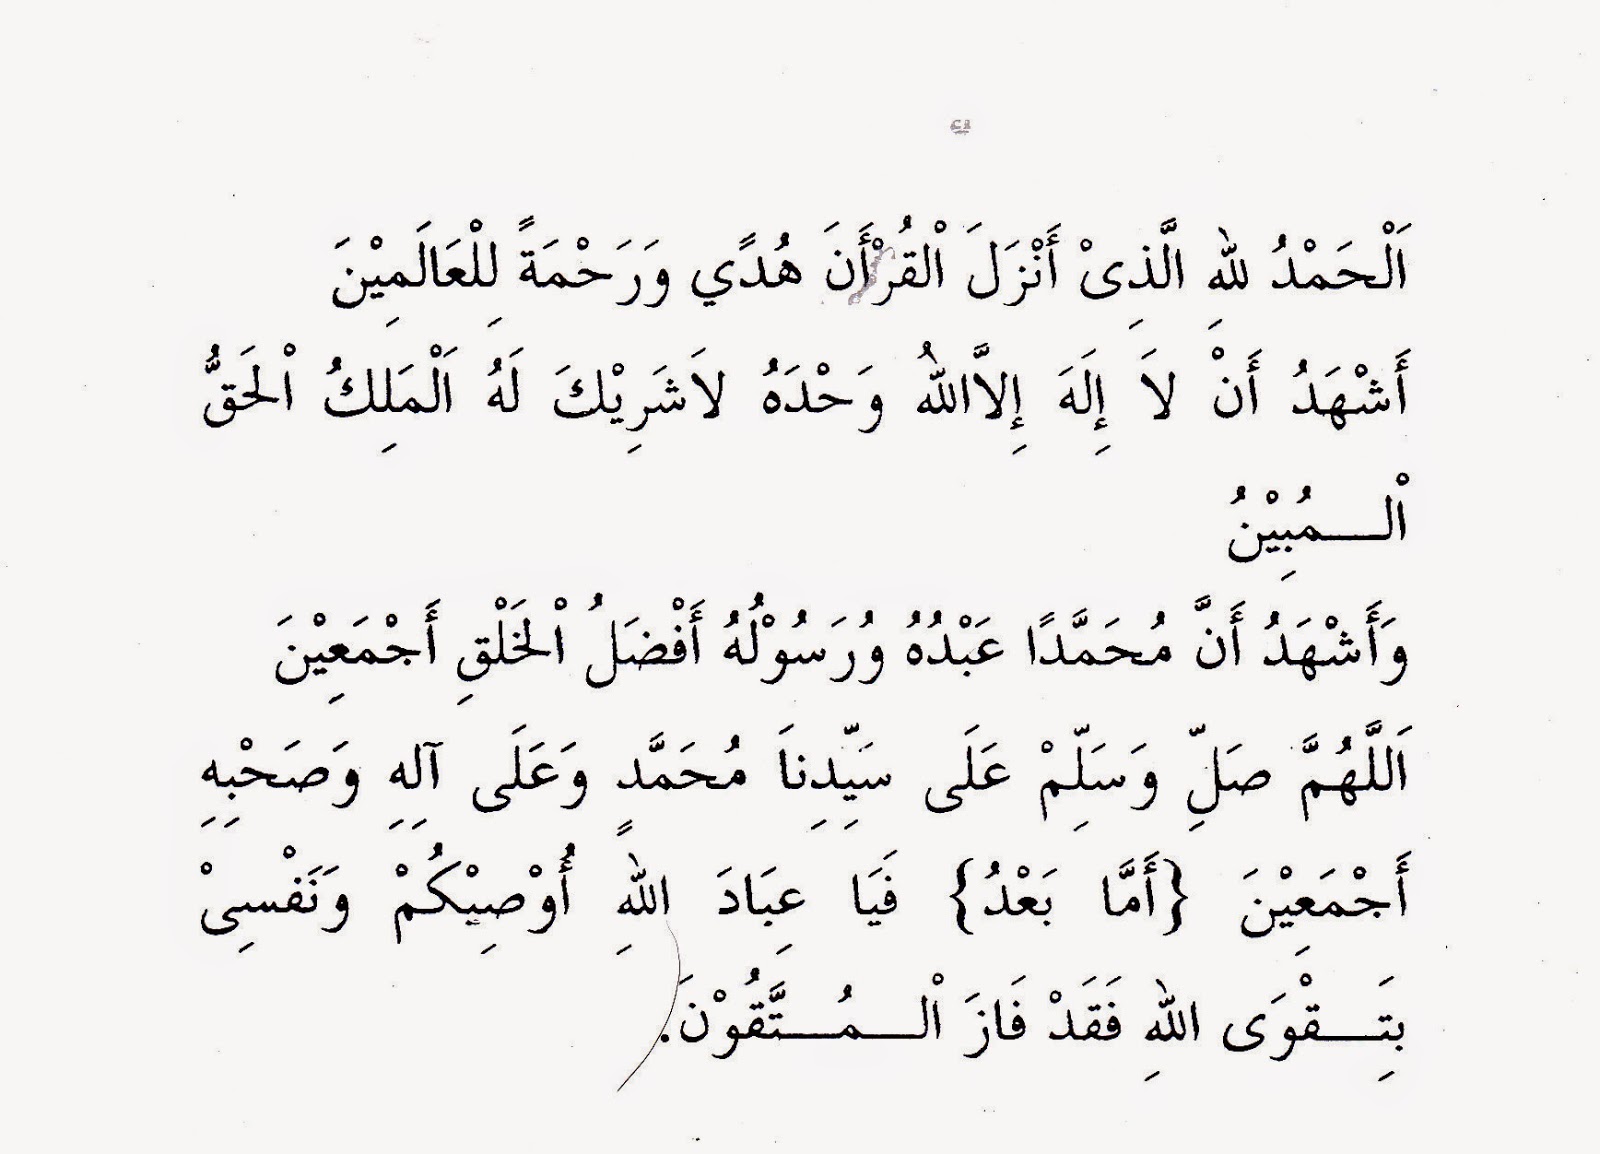 اَلْحَمْدُ للهِ الَّذِىْ أَنْزَلَ الْقُرْأَنَ هُدًي وَرَحْمَةً لِلْعَالَمِيْنَ
أَشْهَدُ أَنْ لاَ إِلَهَ إِلاَّاللهُ وَحْدَهُ لاَشَرِيْكَ لَهُ اَلْمَلِكُ اْلحَقُّ
اْلـــمُبِيْنُ
وَأَشْهَدُ أَنَّ مُحَمَّدًا عَبْدُهُ وُرَسُوْلُهُ أَفْضَلُ اْلخَلْقِ أَجْمَعِيْنَ
اَللَّهُمَّ صَلِّ وَسَلِّمْ عَلَى سَيِّدِنِاَ مُحَمَّدٍ وَعَلَى آلِهِ وَصَحْبِهِ
أَجْمَعِيْنَ {أَمَّا بَعْدُ} فَيَا عِبَادَ اللهِ أُوْصِيْكُمْ وَنَفْسِىْ
بِتَـــقْوَى اللهِ فَقَدْ فَازَ اْلـــمُـــتَّقُوْنَ.